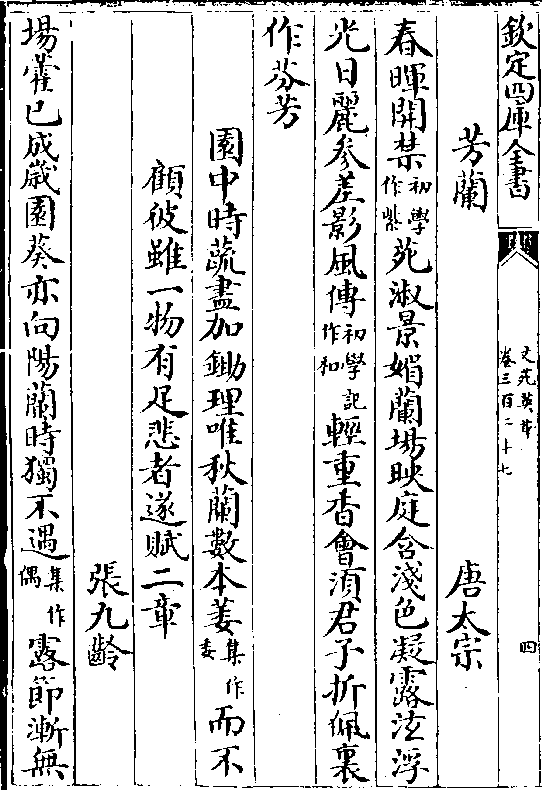 欽定四庫全書 文苑英華 卷三百二十七 四
芳蘭 唐太宗
春暉開禁初學作紫苑淑景媚蘭場映庭含淺色凝露泫浮
光日麗參差影風傳初學記作和輕重香會須君子折佩裏
作芬芳
園中時蔬盡加鋤理唯秋蘭數本姜集作委而不
顧彼雖一物有足悲者遂賦二章
張九齡
場藿已成歲園葵亦向陽蘭時獨不遇集作偶露節漸無